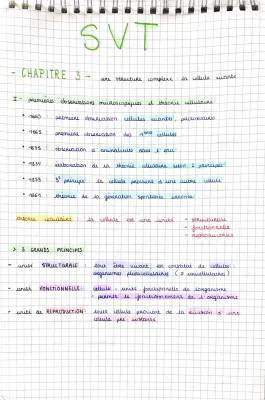 SVT
- CHAPITRE 3 - une structure complexe : la cellule vivante
I - premières observations microscopiques et théorie cellulaire
première observation cellules
• 1665 première observation des cellules
observation d'animalcules dans l'eau
élaboration de la théorie cellulaire selon 2 principes
3e principe : la cellule provient d'une autre cellule
théorie de la génération spontanée
théorie cellulaire : la cellule est une unité - structurale
- fonctionnelle
- reproductrice
> 3 GRANDS PRINCIPES
- unité STRUCTURALE : tout être vivant est constitué de cellules
organismes pluricellulaires (≠ unicellulaires)
- unité FONCTIONNELLE : cellule : unité fonctionnelle de l'organisme
permet le fonctionnement de l'organisme
- unité de REPRODUCTION : toute cellule provient de la division d'une
cellule